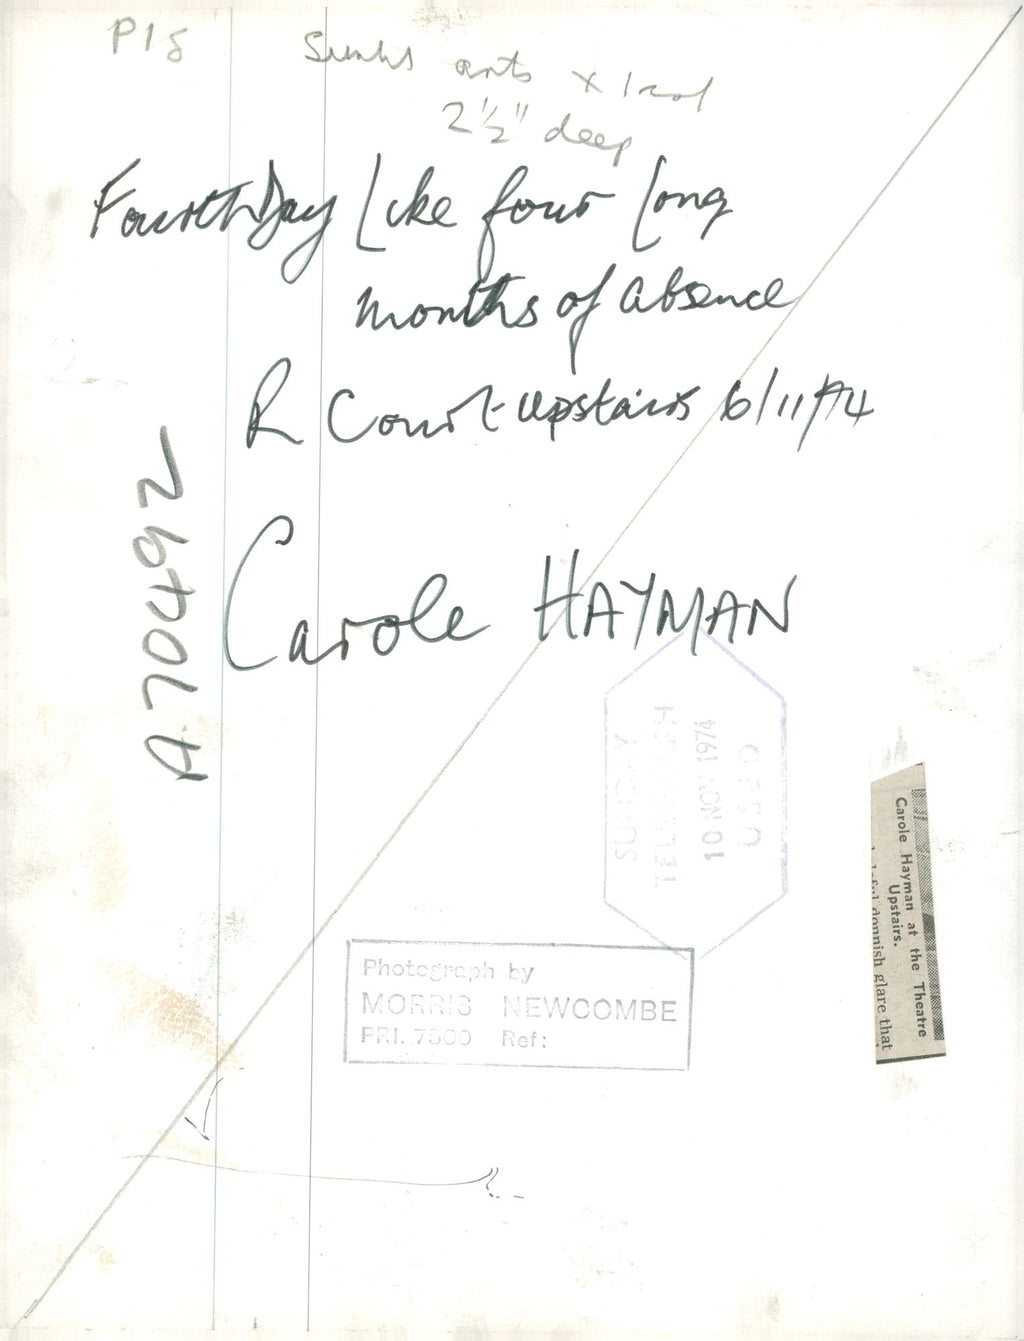 P18
arts x 1 col
2½" deep
Fourth Day Like four long
months of absence
R Court Upstairs 6/11/74
A.70492
Carole HAYMAN
SUNDAY
TELEGRAPH
10 NOV 1974
USED
Carole Hayman at the Theatre
Upstairs.
donnish glare that
Photograph by
MORRIS NEWCOMBE
PRI. 7500 Ref: